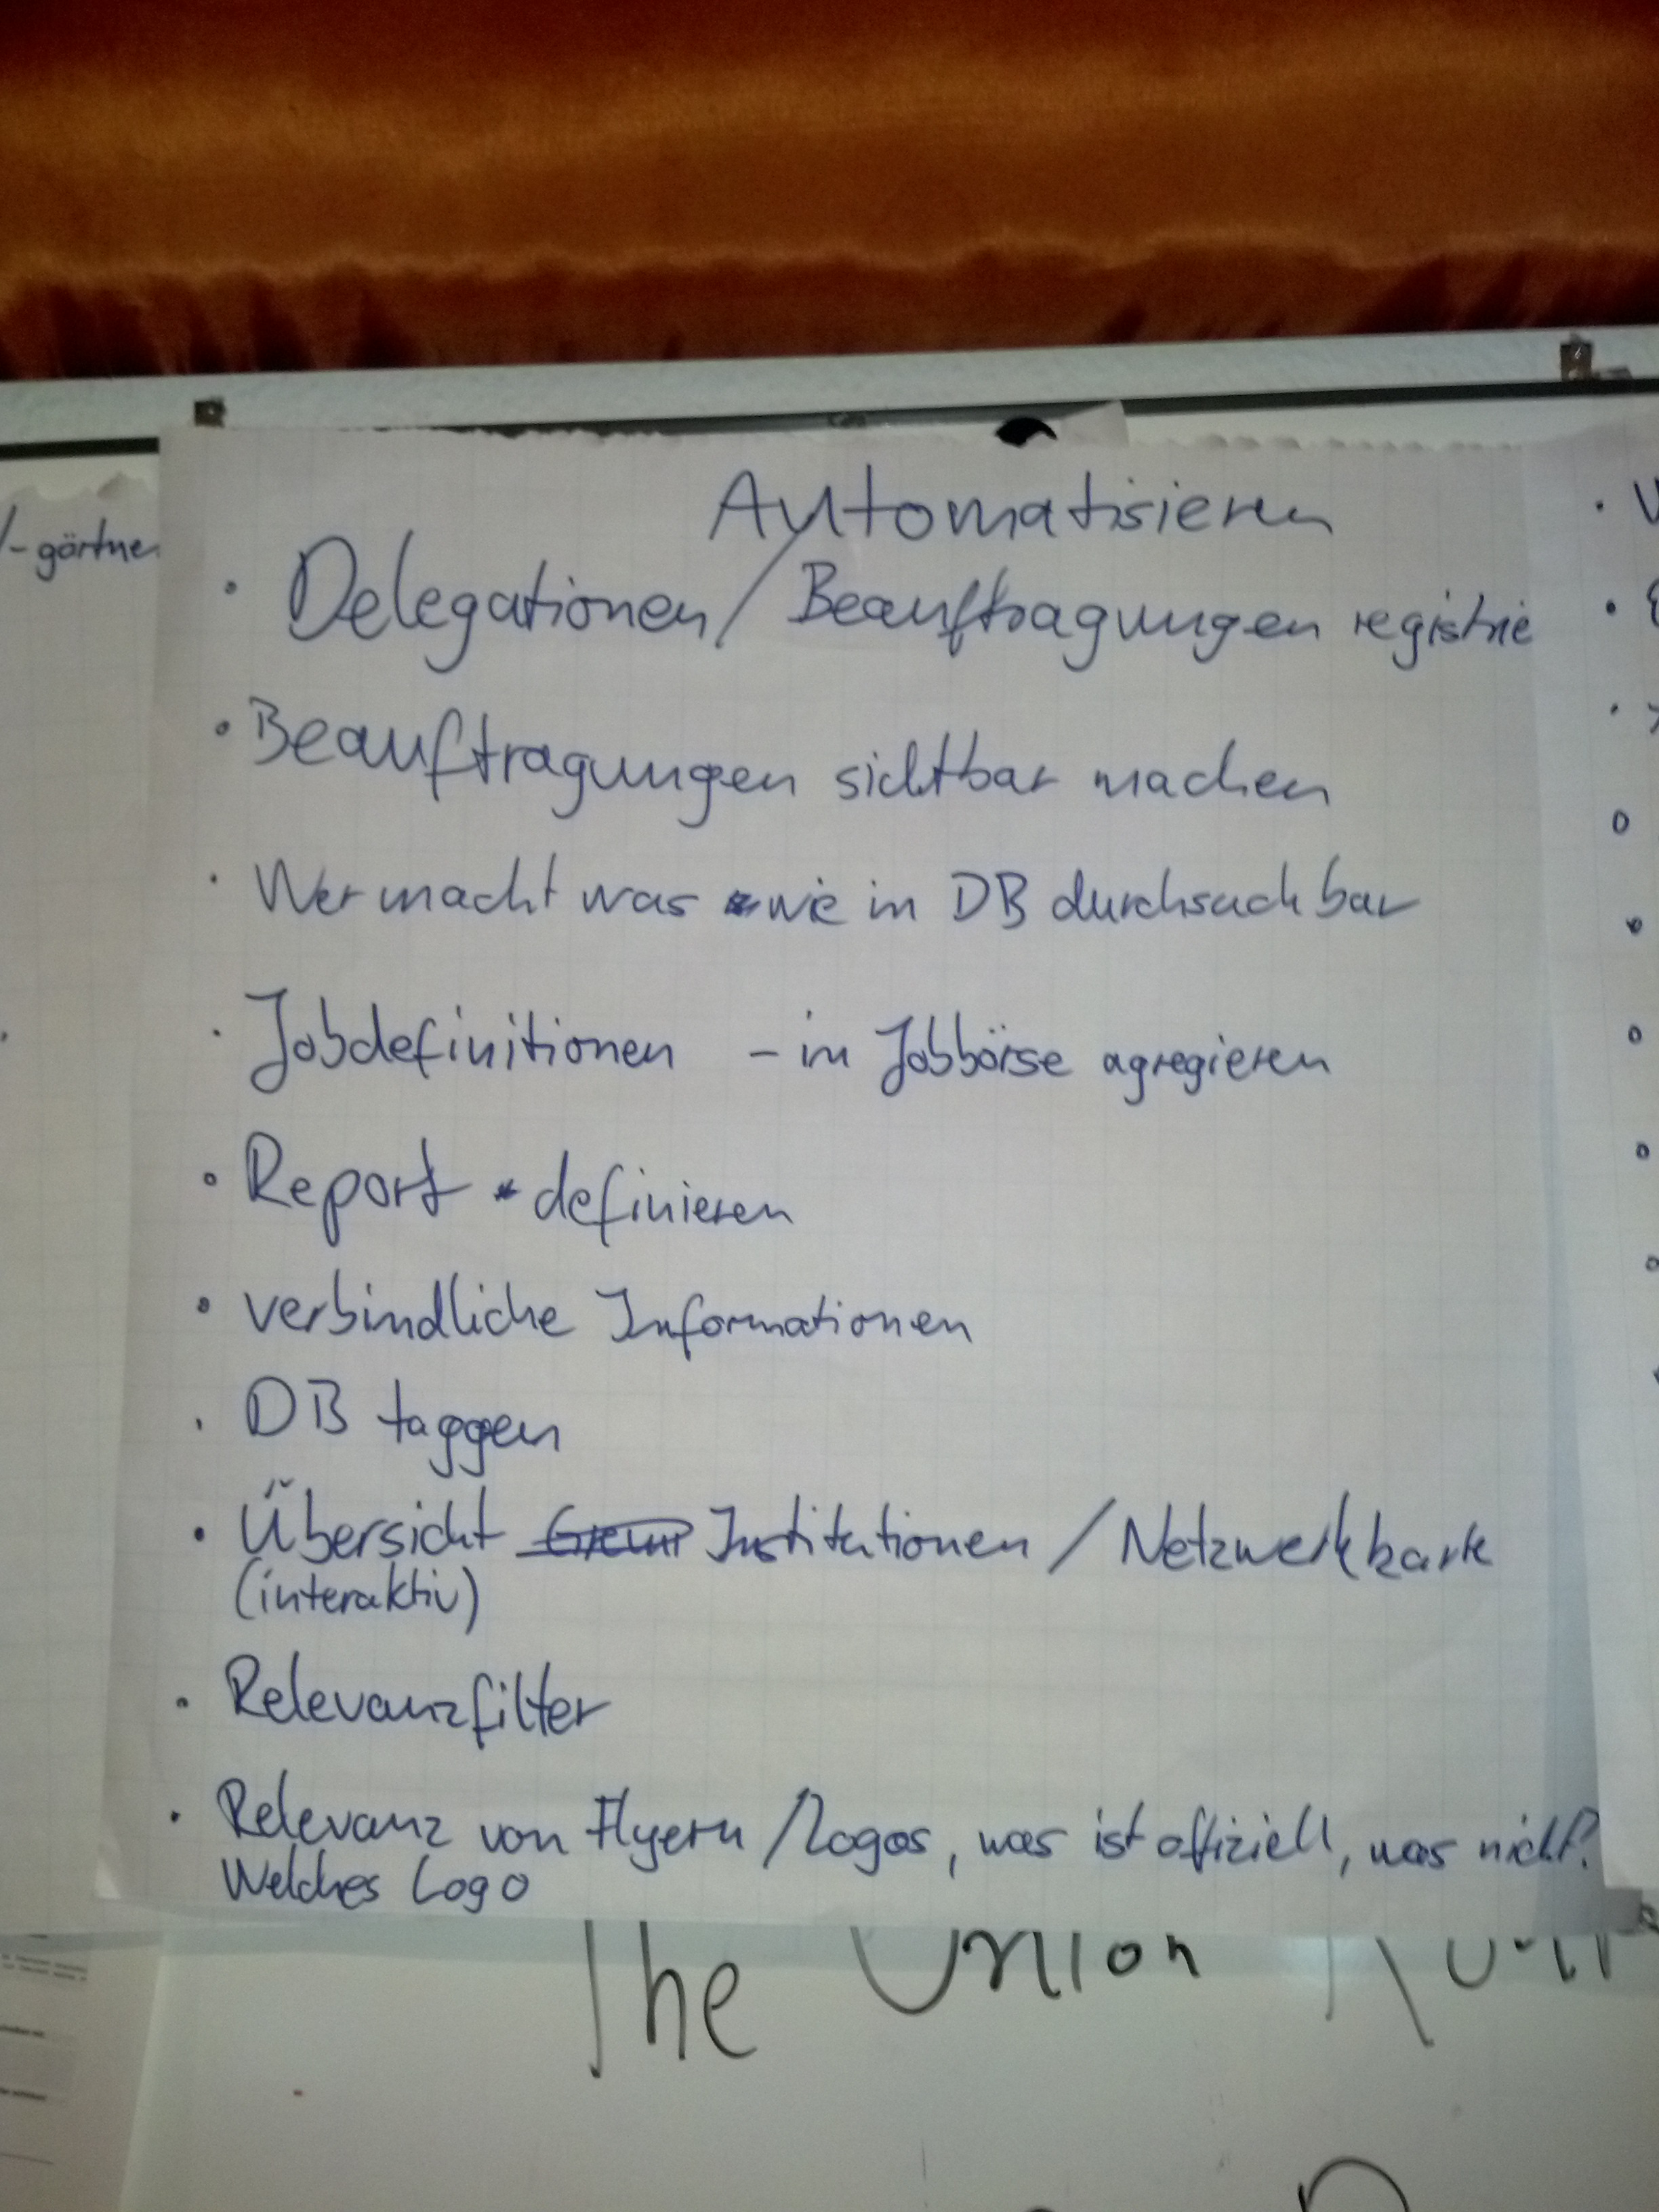 Automatisieren
-gärtner
• Delegationen/Beauftragungen registrie
• Beauftragungen sichtbar machen
• Wer macht was wie in DB durchsuchbar
• Jobdefinitionen – in Jobbörse agregieren
• Report definieren
• verbindliche Informationen
• DB taggen
• Übersicht Institutionen / Netzwerkkarte
(interaktiv)
• Relevanzfilter
• Relevanz von Flyern /Logos, was ist offiziell, was nicht?
Welches Logo
The Union